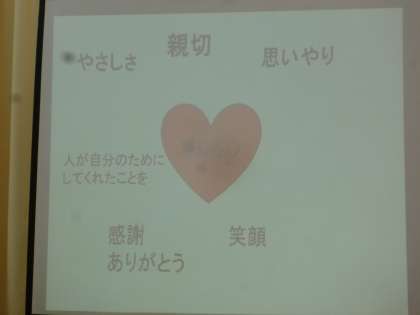 親切
やさしさ
思いやり
人が自分のために
してくれたことを
感謝
ありがとう
笑顔